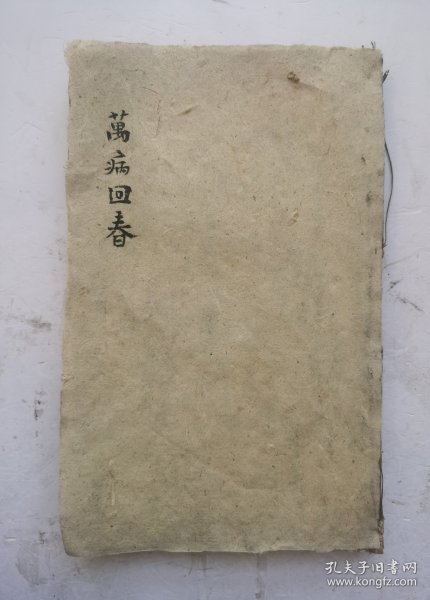 萬病回春
孔夫子旧书网
www.kongfz.com